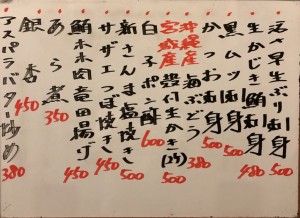 早生ぶり刺身 500
生かじき鮪刺身 480
黒ムツ刺身 500
かつお刺身 500
沖縄産海ぶどう 380
宮城産殻付生かき(2ケ) 500
白子ポン酢 600
新さんま塩焼き 500
サザエつぼ焼き 450
鮪ホホ肉竜田揚げ 450
あら煮 350
銀杏 450
アスパラバター炒め 380